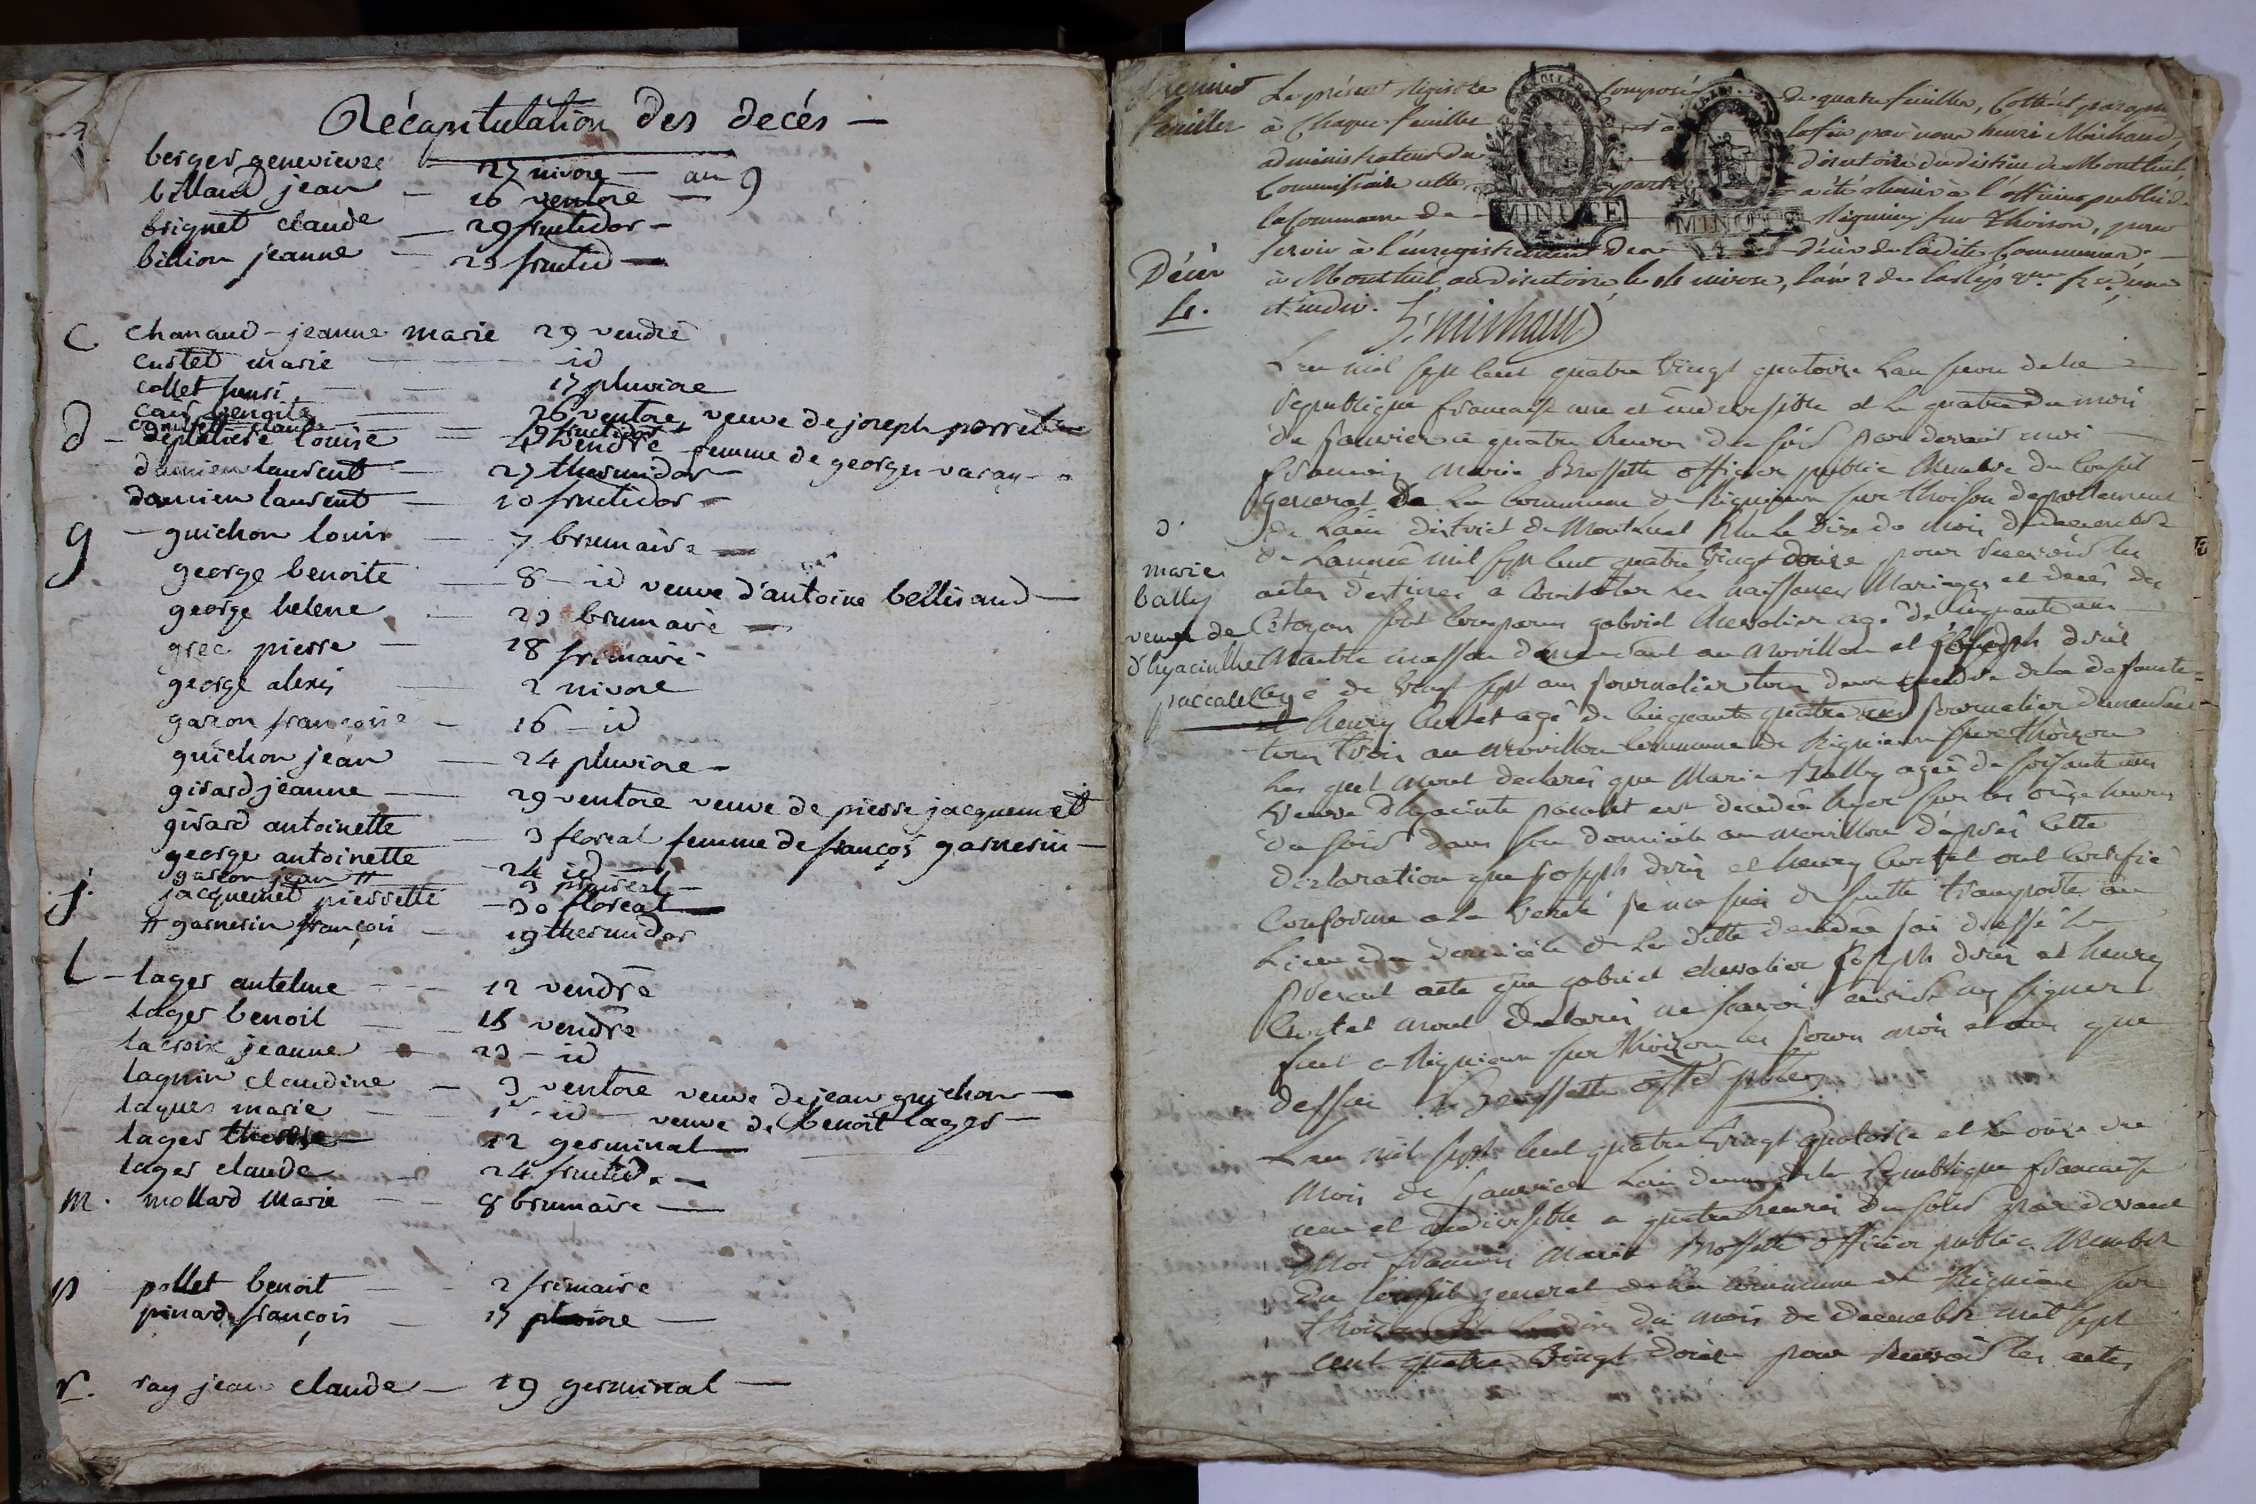 Récapitulation des decés —
berger genevieve 27 nivose — an 9
billaud jean — 16 ventose —
brignet claude — 29 fructidor —
billion jeanne — 29 fructid —
C chanaud - jeanne marie 29 vendre
curtet marie — id
collet 17 pluviose
26 ventose, veuve de joseph perret
9 fructidor
d - louise = 4 vendre femme de georges varay
damien laurent — 27 thermidor —
damien laurent — 10 fructidor —
g — guichon louis — 7 brumaire —
george benoite — 8 — id veuve d'antoine bellisand —
george helene — 29 brumaire —
grec pierre — 18 frimaire
george alexis — 2 nivose
gason françoise — 16 — id
guichon jean — 24 pluviose —
girard jeanne — 29 ventose veuve de pierre jacquemet
girard antoinette — 3 floreal femme de françois garnerin —
george antoinette — 24 id
gason jean #
j. jacquemet pierrette — 30 floreal —
# garnerin françois — 19 thermidor
L — lager antelme — 12 vendre
lager benoit — 15 vendre
lacroix jeanne — 29 — id
lagnin claudine — 3 ventose veuve de jean guichon —
laques marie — 1er id — veuve de benoit lager —
lager therese — 12 germinal —
lager claude — 24 fructid. —
m. mollard marie — 8 brumaire —
p pollet benoit — 2 frimaire
pinard françois — 17 pluviose —
r. ray jean claude — 19 germinal —
Premier Le présent registre composé de quatre feuillets, Cottés et paraphé
feuillet à Chaque feuillet la fin par nous henri Michaud,
administrateur du directoire du district de Montluel,
Commissaire cette part a été remis à l'officier public de
la Commune de Rignieux sur Thoison, pour
MINUTE
MINUTE
servir à l'enregistrement des Décès de ladite Commune.
Décès à Montluel au directoire le nivose, l'an 2 de la Rép. que fse une
et indiv. h. michaud
L'an mil sept cent quatre vingt quatorze L'an second de la
Republique francaise une et indivisible et le quatre du mois
de janvier à quatre heures du soir par devant moi
francois marie Brossette officier public membre du Conseil
general de la Commune de Rignieux sur thoison departement
de Lain district de Montluel Elu le Dix du mois de decembre
de Lannée mil sept cent quatre vingt douze pour recevoir les
actes destinés à constater les naissances Mariages et decès des
Citoyens sont comparus gabriel chevalier agé de cinquante ans
marie
bally
veuve de
d'hyacinthe
paccalet
maitre masson demeurant au Movillon et joseph
agé de vingt sept ans journalier tous deux de la defunte
et henry curtet agé de cinquante quatre ans journalier demeurant
tous trois au Movillon Commune de Rignieux sur thoizon
Les quel m'ont declaré que Marie Bally agée de soisante ans
veuve D'hyacinte pacalet est decedée hyer sur les onze heures
du soir dans son domicile au movillon d'après cette
declaration que joseph et henry Curtet ont Certifié
Conforme a la verité je me suis de suitte transporté au
Lieu du domicile de la ditte decedée j'ai dressé le
present acte que gabriel chevalier joseph et henry
Curtet m'ont declaré ne savoir ecrire ny signer
fait a Rignieux sur thoizon les jours mois et an que
dessus Brossette
L'an mil sept cent quatre vingt quatorze et le onze du
mois de janvier L'an deux de la Republique francaise
une et indivisible a quatre heures du soir par devant
Moi francois marie Brossette officier public membre
du Conseil general de la Commune de Rignieux sur
thoizon du mois de decembre mil sept
cent quatre vingt douze pour recevoir les actes